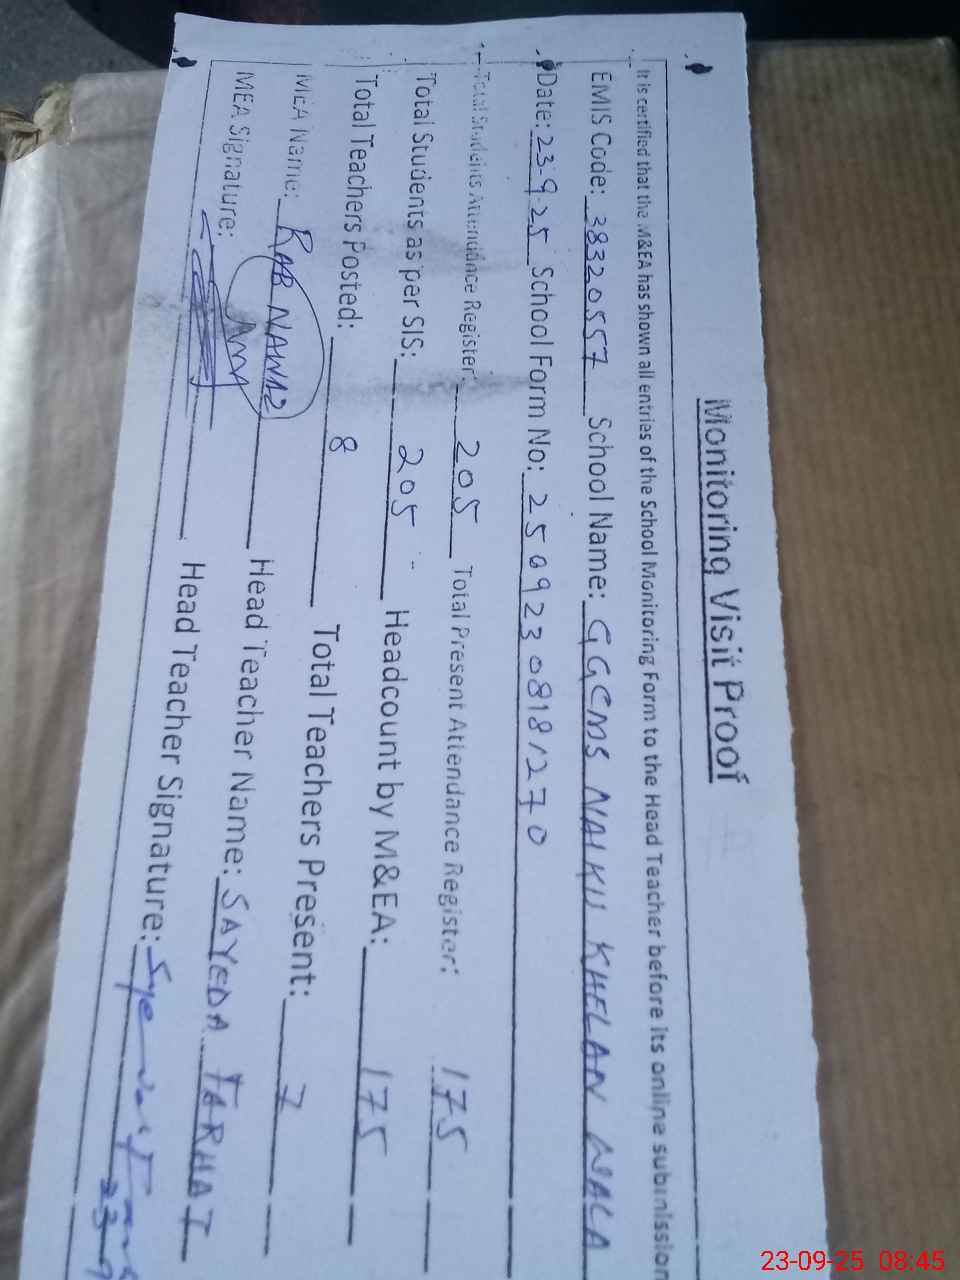 Monitoring Visit Proof
It is certified that the M&EA has shown all entries of the School Monitoring Form to the Head Teacher before its online submission
EMIS Code: 38320557 School Name: GGCMS NAIKU KHELAN WALA
Date: 23-9-25 School Form No: 25092308181270
Total Students Attendance Register 205 Total Present Attendance Register: 175
Total Students as per SIS: 205 Headcount by M&EA: 175
Total Teachers Posted: 8 Total Teachers Present: 7
MEA Name: RAB NAWAZ Head Teacher Name: SAYEDA FARHAT
MEA Signature: Head Teacher Signature:
23-9
23-09-25 08:45